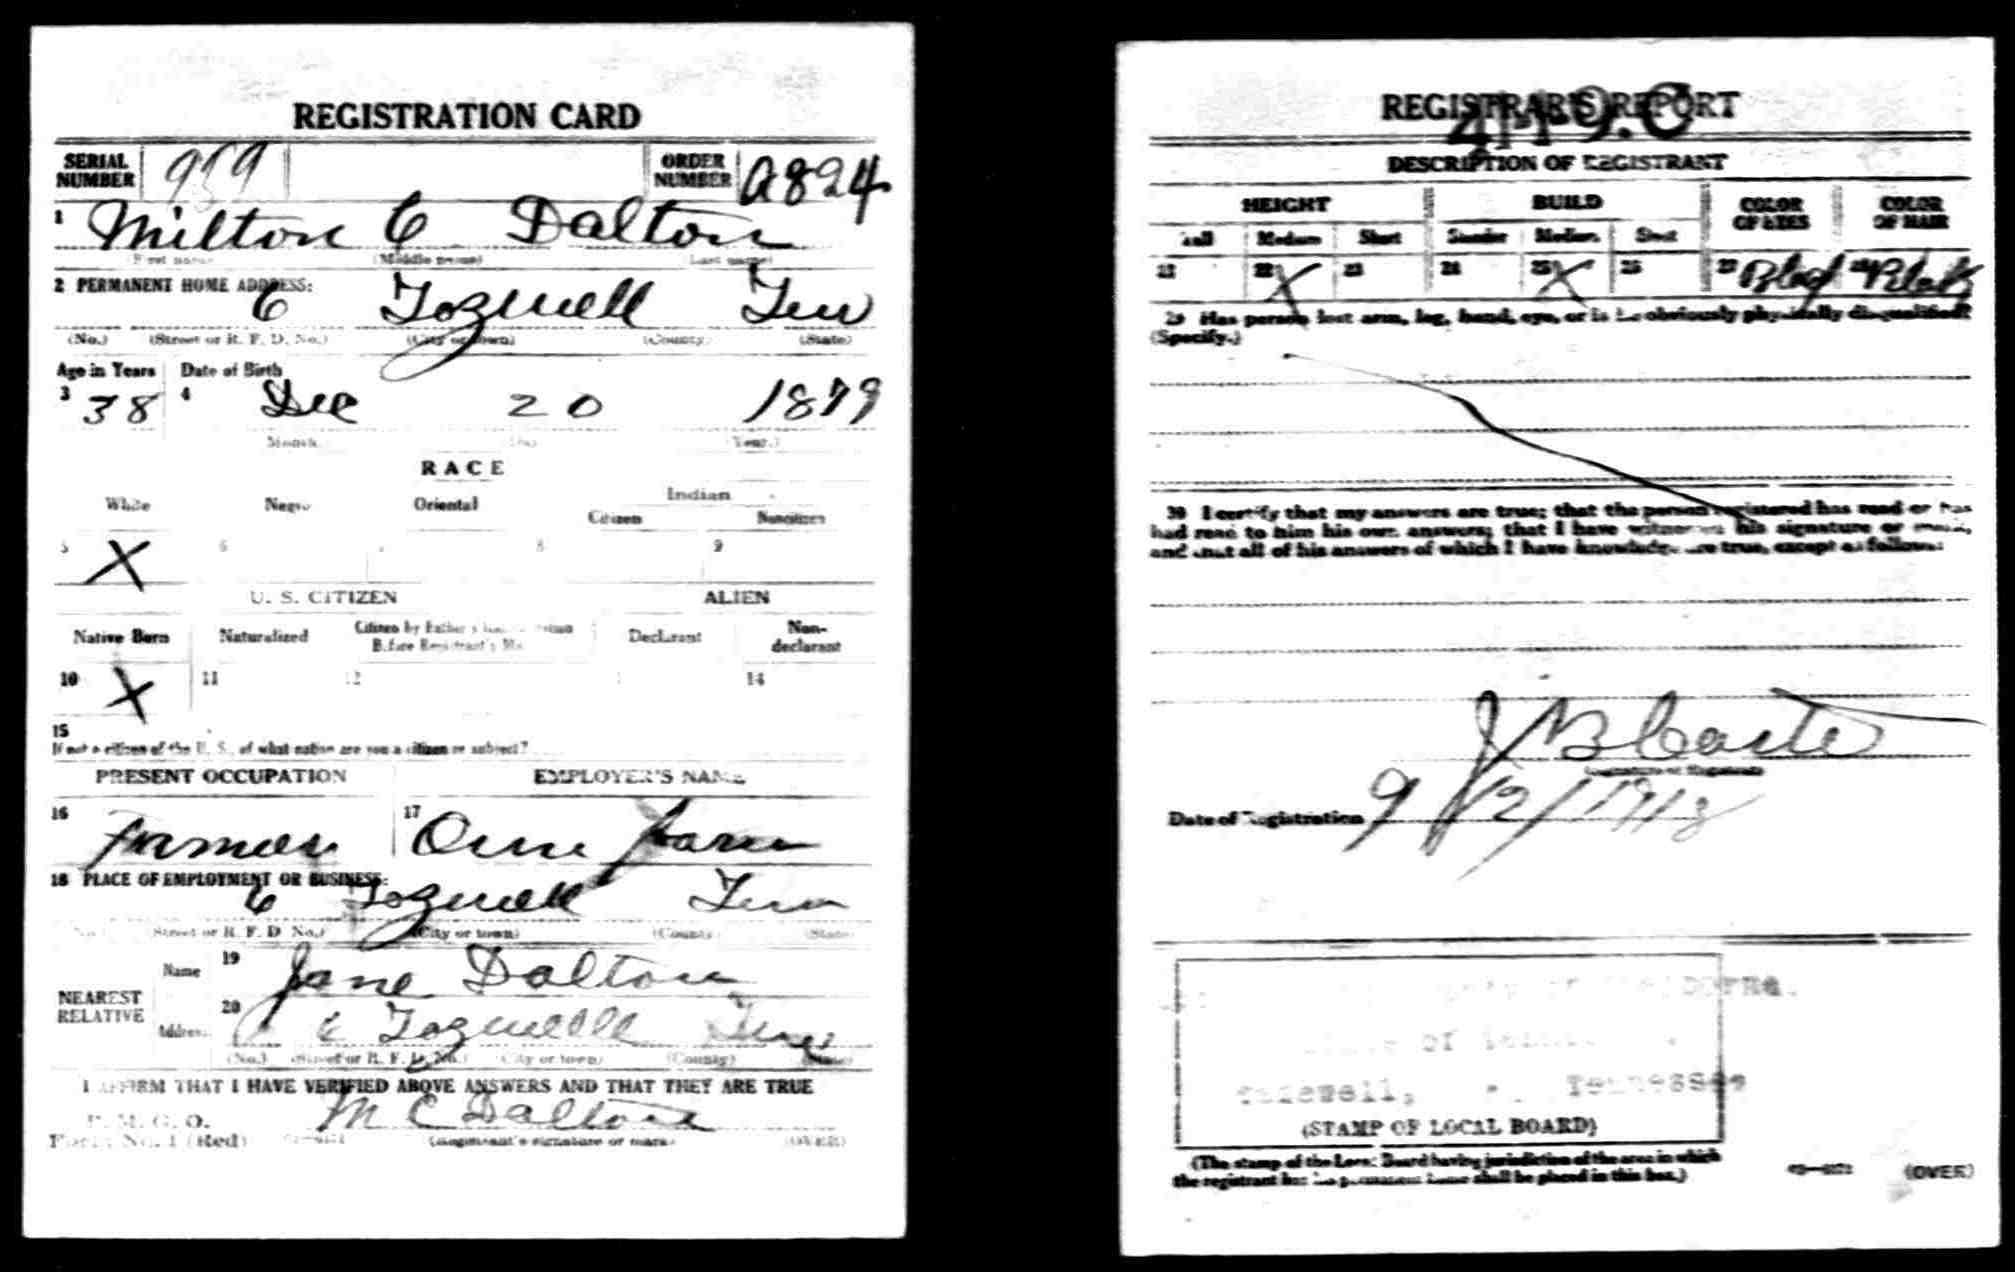 REGISTRATION CARD
SERIAL NUMBER 959 ORDER NUMBER A824
1 Milton C Dalton
(First name) (Middle name) (Last name)
2 PERMANENT HOME ADDRESS:
6 Tozwell Ten
(No.) (Street or R. F. D. No.) (City or town) (County) (State)
Age in Years Date of Birth
3 38 4 Dec 20 1879
Month. Day Year.)
RACE
White Negro Oriental Indian
Citizen Noncitizen
5 X 6 8 9
U. S. CITIZEN ALIEN
Native Born Naturalized Citizen by Father's Before Registrant's Declarant Non-declarant
10 X 11 12 14
15
If not a citizen of the U. S., of what nation are you a citizen or subject?
PRESENT OCCUPATION EMPLOYER'S NAME
16 Farmer 17 Own farm
18 PLACE OF EMPLOYMENT OR BUSINESS:
6 Tozwell Tenn
Street or R. F. D No.) (City or town) (County) (State)
NEAREST RELATIVE
Name 19 Jane Dalton
Address 20 6 Tozwell Tenn
(No.) (Street or R. F. D. No.) (City or town) (County) (State)
I AFFIRM THAT I HAVE VERIFIED ABOVE ANSWERS AND THAT THEY ARE TRUE
P. M. G. O.
Form No. 1 (Red) M C Dalton
(Registrant's signature or mark) (OVER)
REGISTRAR'S REPORT
DESCRIPTION OF REGISTRANT
HEIGHT BUILD COLOR OF EYES COLOR OF HAIR
Tall Medium Short Slender Medium Stout
21 22 X 23 24 25 X 26 27 28 Black
29 Has person lost arm, leg, hand, eye, or is he obviously physically disqualified?
(Specify.)
30 I certify that my answers are true; that the person registered has read or has
had read to him his own answers; that I have witnessed his signature or mark,
and that all of his answers of which I have knowledge are true, except as follows:
J B
(Signature of Registrar)
Date of Registration 9/12/1918
of
Tazewell, Tennessee
(STAMP OF LOCAL BOARD)
(The stamp of the Local Board having jurisdiction of the area in which
the registrant has his permanent home shall be placed in this box.)
(OVER)